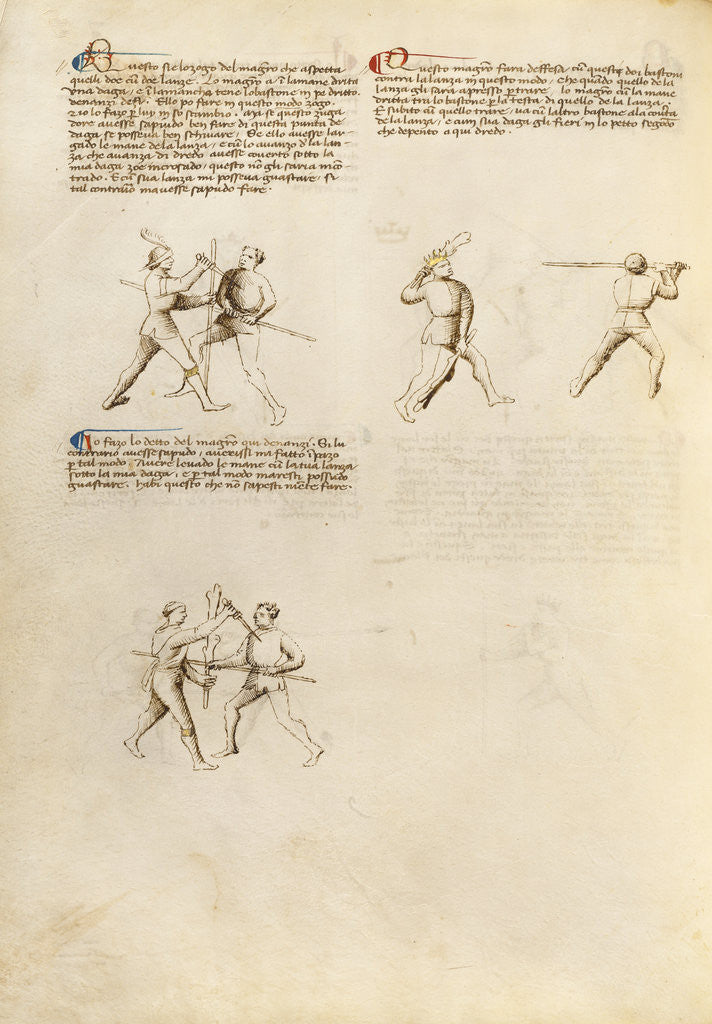 Questo sie lo zogo del magro che aspetta
quelli doe cu doe lanze. Lo magro a i la mane drita
una daga, e i la mancha tene lo bastone in pe dritto
denanzi de si. Ello po fare in questo modo zogo.
E io lo fazo per lui in so scambio. Ma se questo zuga
dore avesse sapudo ben fare di questa punta de
daga se posseva ben schivare. Se ello avesse lar
gado le mane de la lanza, e cu lo avanzo d'la lan
za che avanza di dredo avesse coverto sotto la
mia daga zoe incrosado, questo no gli saria incon
trado. E cu sua lanza mi posseva guastare, si
tal contrario m avesse sapudo fare.
Questo magro fara deffesa cu questi doi bastoni
contra la lanza in questo modo, che quado quello de la
lanza gli sara apresso per trare, lo magro cu la mane
dritta tra lo bastone per la testa di quello de la lanza,
E subito cu quello trare, va cu l altro bastone a la coverta
de la lanza, e cum sua daga gli fieri in lo petto segodo
che depento a qui dredo.
Io fazo lo detto del magro qui denanzi. Si lu
contrario avesse sapudo, averissi mi fatto ipazo
per tal modo. Avere levado le mane cu la tua lanza
sotto la mia daga, e per tal modo maresti possudo
guastare. Habi questo che no sapesti niete fare.